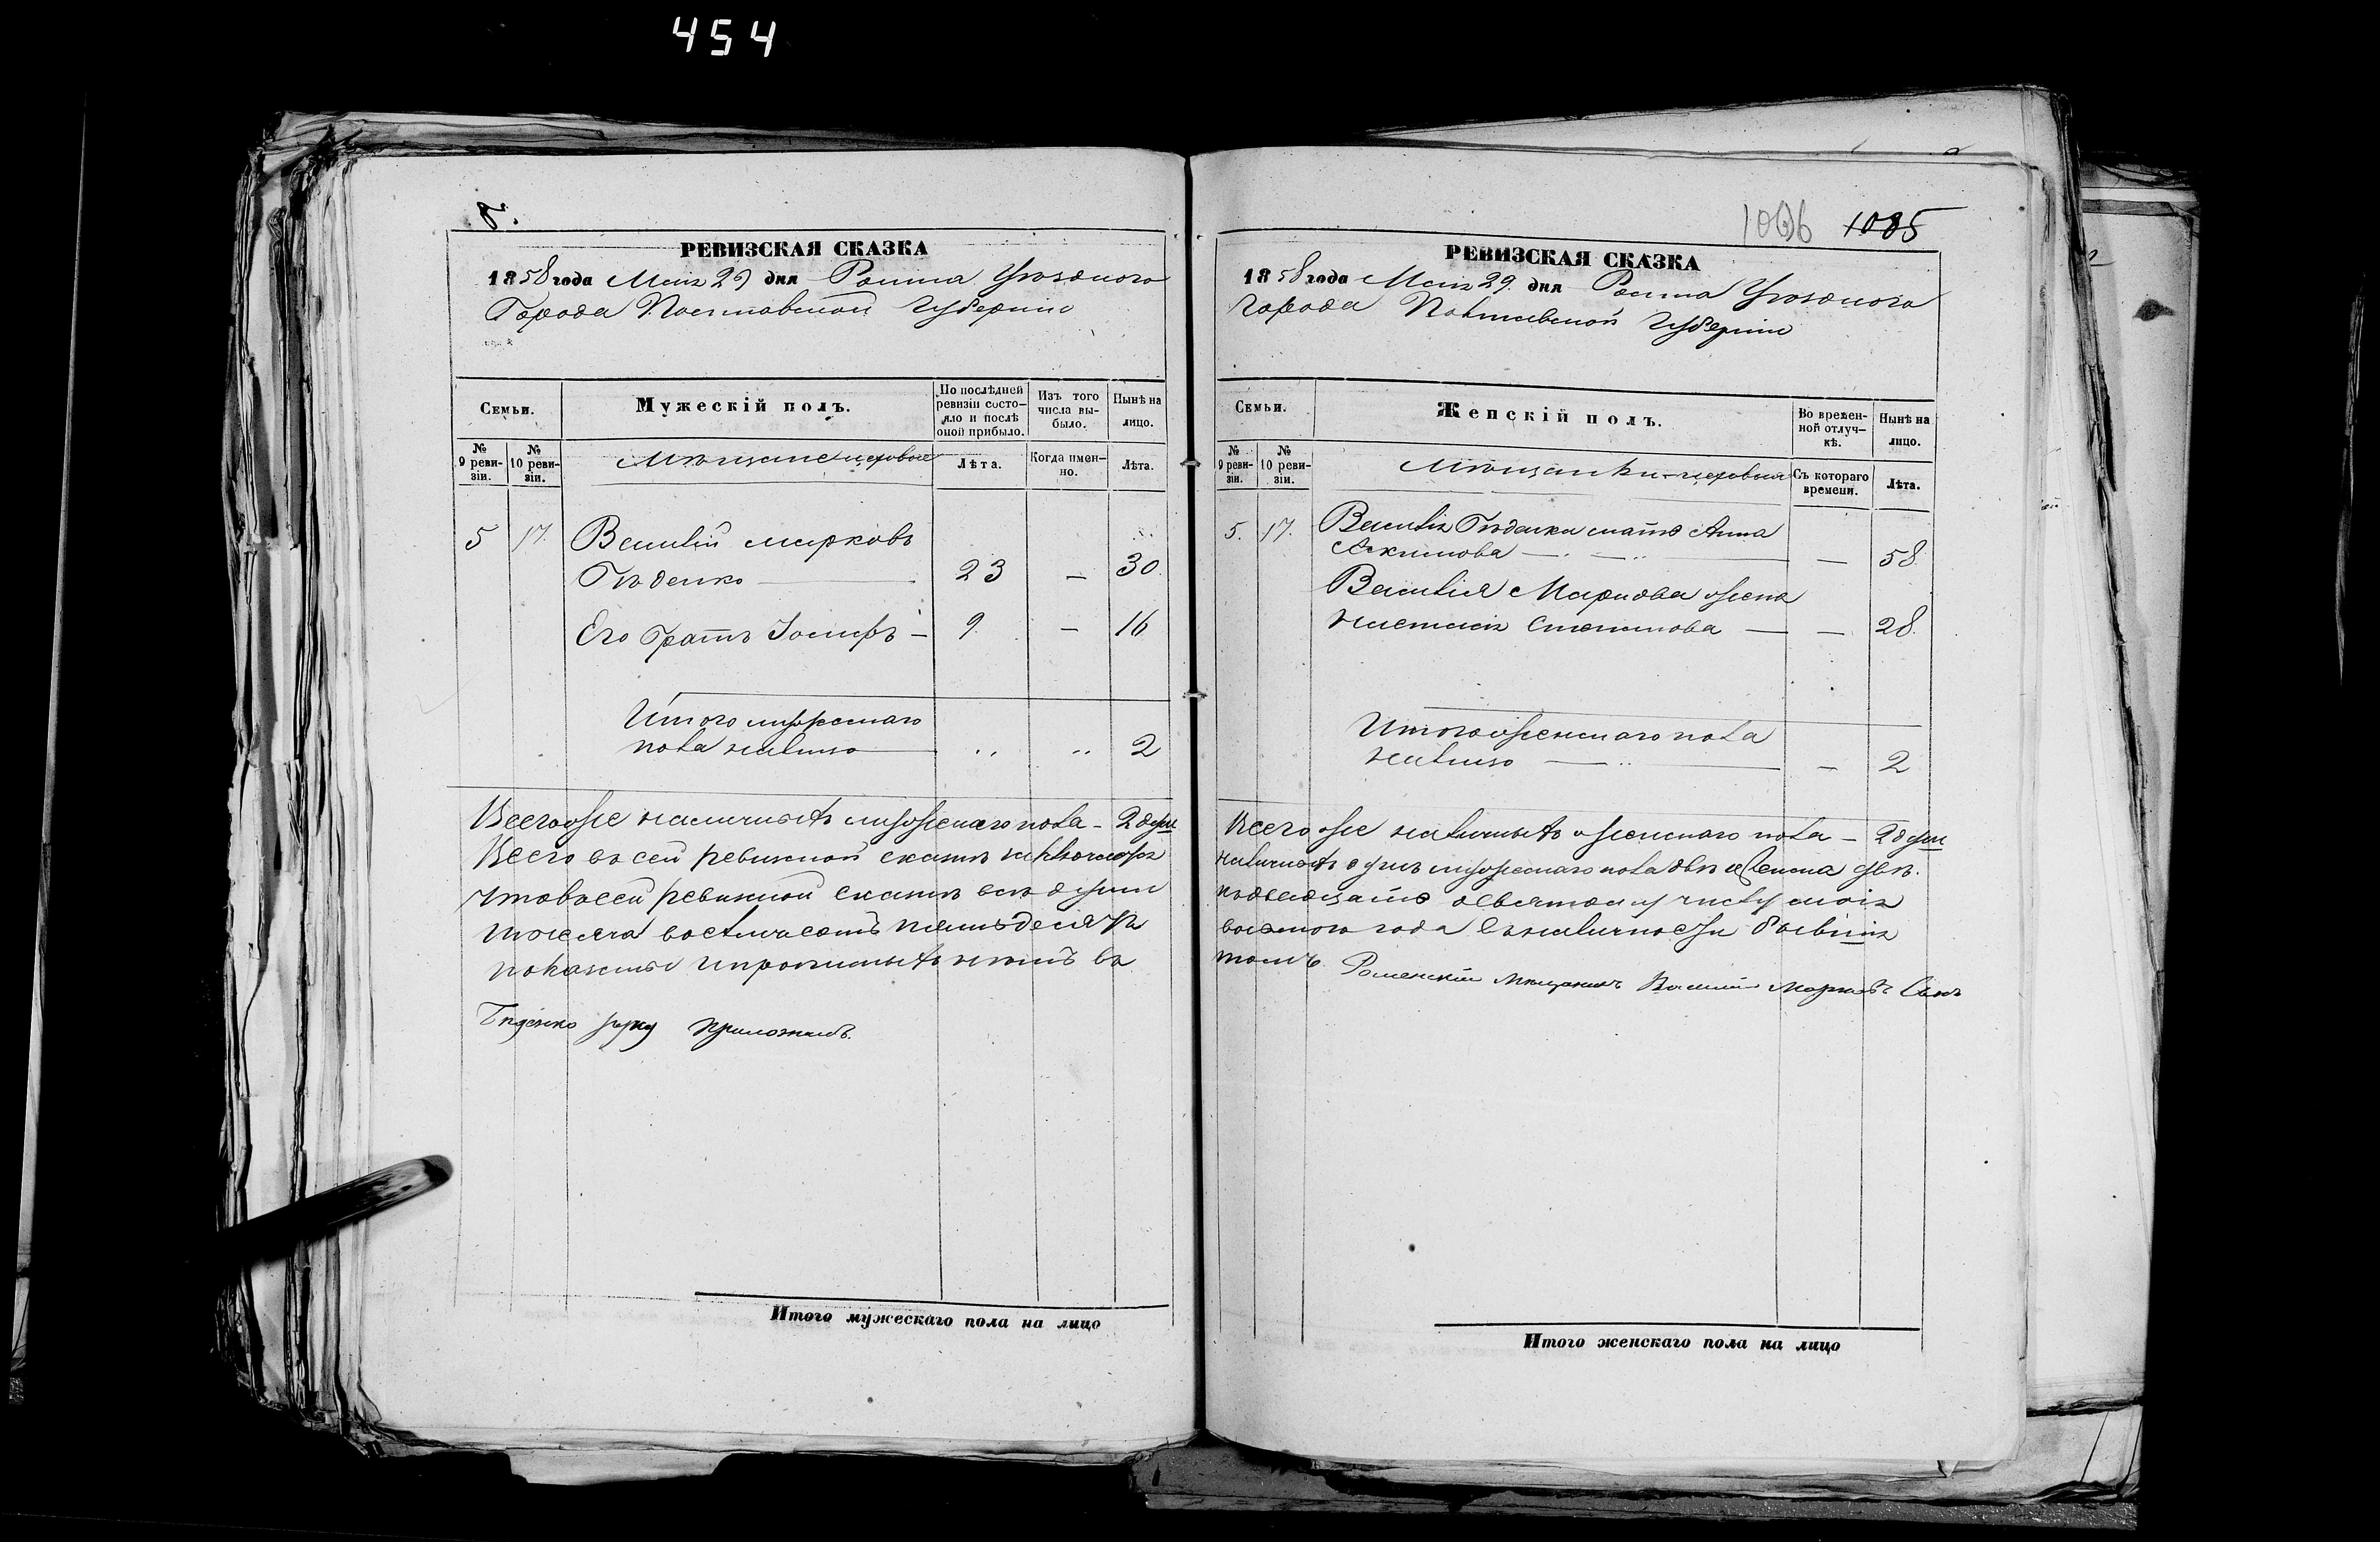 454
8.
РЕВИЗСКАЯ СКАЗКА
1858 года Маія 29 дня Ромна Уѣзднаго
Города Полтавской Губерніи
Семьи.
Мужескій полъ.
По послѣдней ревизіи состояло и послѣ оной прибыло.
Изъ того числа выбыло.
Нынѣ на лицо.
№ 9 ревизіи.
№ 10 ревизіи.
Мѣщане цеховые
Лѣта.
Когда именно.
Лѣта.
5 17. Василій Марковъ
Бѣденко — 23 — 30
Его братъ Іосифъ — 9 — 16
Итого мужескаго
пола налицо — 2
Всего же наличныхъ мужескаго пола — 2 души
Всего въ сей ревизкой сказкѣ
что въ сей ревизкой сказкѣ всѣ души
тысяча восемьсотъ пятьдесятъ
показаны и прописныхъ нѣтъ въ
Бѣденко руку приложилъ.
1006 1005
РЕВИЗСКАЯ СКАЗКА
1858 года Маія 29. дня Ромна Уѣзднаго
Города Полтавской Губерніи
Семьи.
Женскій полъ.
Во временной отлучкѣ.
Нынѣ на лицо.
№ 9 ревизіи.
№ 10 ревизіи.
Мѣщанки цеховыя
Съ котораго времени.
Лѣта.
5. 17. Василія Бѣденка мать Анна
Акимова — — 58
Василія Маркова жена
Настасія Степанова — — 28
Итого женскаго пола
налицо — — 2
Всего же наличныхъ женскаго пола — 2 души
наличныхъ душъ мужескаго пола двѣ и женска двѣ.
къ двадцать девятому числу маія
восьмого года въ наличности бывшіе
томъ. Роменскій мѣщанинъ Василій Марковъ Сынъ
Итого мужескаго пола на лицо
Итого женскаго пола на лицо